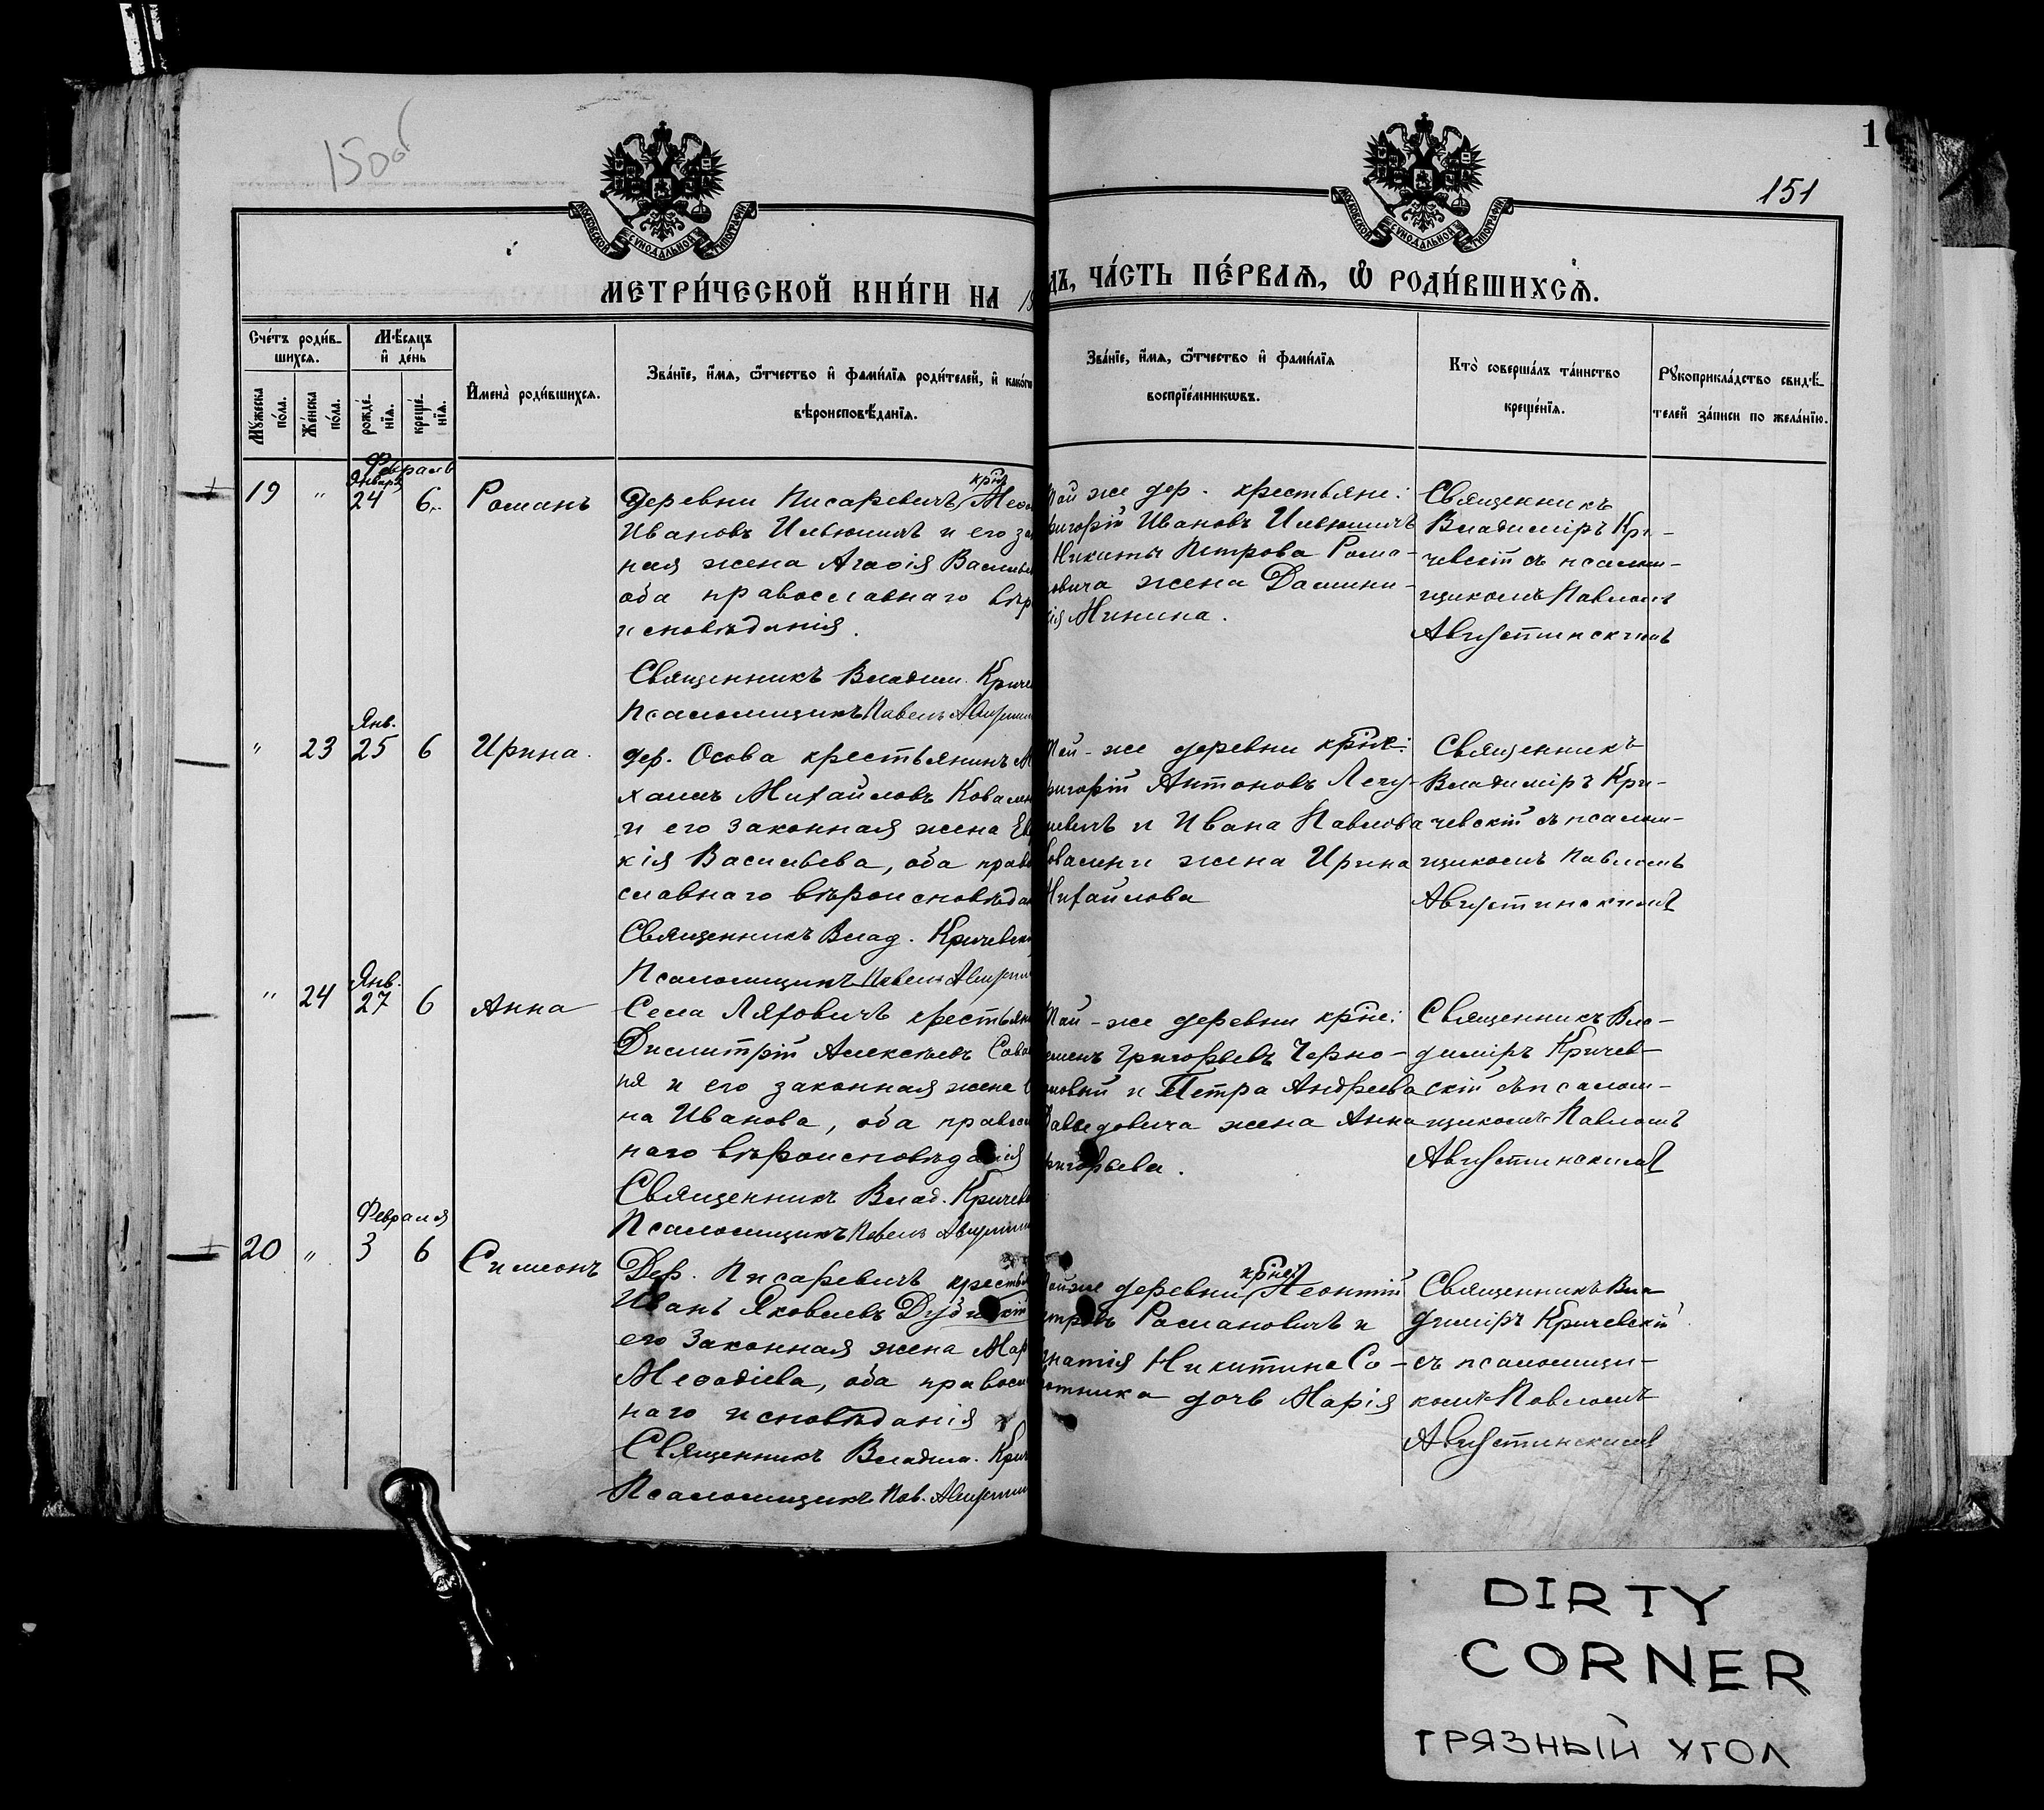 150об
1
151
МОСКОВСКОЙ СѴНОДАЛЬНОЙ ТИПОГРАФІИ
МОСКОВСКОЙ СѴНОДАЛЬНОЙ ТИПОГРАФІИ
МЕТРИ́ЧЕСКОЙ КНИ́ГИ НА 19
дъ, ЧА́СТЬ ПЕ́РВАѦ, Ѡ РОДИ́ВШИХСѦ.
Сче́тъ роди́в-
шихсѧ.
Мꙋжеска по́ла.
Же́нска по́ла.
Мѣ́сѧцъ
и҆ де́нь
рожде́-
нїѧ.
креще́-
нїѧ.
И҆мена̀ роди́вшихсѧ.
Зва́нїе, и҆́мѧ, ѻ҆́тчество и҆ фамѝлїѧ роди́телей, и҆ како́гѡ
вѣроисповѣ́данїѧ.
Зва́нїе, и҆́мѧ, ѻ҆́тчество и҆ фамѝлїѧ
воспрїе́мникѡвъ.
Кто̀ соверша́лъ та́инство
креще́нїѧ.
Рꙋкоприкла́дство свидѣ́-
телей за́писи по жела́нїю.
Февраль
Января
19 " 24 6 Романъ
крнъ
Деревни Писаревичъ Меѳо
Ивановъ Ильюшичъ и его за
ная жена Агаѳія Василье
оба православнаго вѣр
исповѣданія.
Священникъ Владим. Криче
Псаломщикъ Павелъ Августин
той же дер. крестьяне:
ригорій Ивановъ Ильюшичъ
Никиты Петрова Рома-
новича жена Домини-
кія Минина.
Священникъ
Владиміръ Кри-
чевскій съ псалом-
щикомъ Павломъ
Августинскимъ
Янв.
" 23 25 6 Ирина.
дер. Осова крестьянинъ М
хаилъ Михайловъ Ковален
и его законная жена Ев
кія Васильева, оба право
славнаго вѣроисповѣдан
Священникъ Влад. Кричевск
Псаломщикъ Павелъ Августин
той-же деревни крне:
ригорій Антоновъ Легу-
невичъ и Ивана Павлова
оваленки жена Ирина
Михайлова
Священникъ
Владиміръ Кри-
чевскій съ псалом-
щикомъ Павломъ
Августинскимъ
Янв.
" 24 27 6 Анна
Села Ляховичъ крестьян
Димитрій Алексѣевъ Сав
ня и его законная жена
на Иванова, оба правос
наго вѣроисповѣданія
Священникъ Влад. Кричев
Псаломщикъ Павелъ Августин
той-же деревни крне:
еменъ Григорьевъ Черно-
и Петра Андреева
Давыдовича жена Анна
ригорьева.
Священникъ Вла-
диміръ Кричев-
скій съ псалом-
щикомъ Павломъ
Августинскимъ
Февраля
20 " 3 6 Симеонъ
Дер. Писаревичъ крестья
Иванъ Яковлевъ Дубицкій
его законная жена Мар
Меѳодіева, оба правосл
наго исповѣданія
Священникъ Владим. Крич
Псаломщикъ Пав. Августин
крне
тойже деревни Леонтій
етровъ Романовичъ и
гнатія Никитина Со-
отника дочь Марія
Священникъ Вла
диміръ Кричевскій
съ псаломщи-
комъ Павломъ
Августинскимъ
DIRTY
CORNER
ГРЯЗНЫЙ УГОЛ